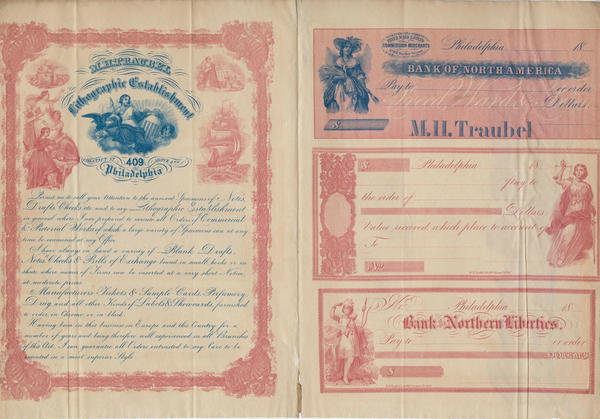 M.H. TRAUBEL
Lithographic Establishment
409
Philadelphia
Permit me to call your Attention to the annexed Specimens of Notes,
Drafts, Checks etc. and to my Lithographic Establishment
in general where I am prepared to execute all Orders of Commercial
& Pictorial Work of which a large variety of Specimens can at any
time be examined at my Office.
I have always on hand a variety of Blank Drafts,
Notes, Checks & Bills of Exchange bound in small books or in
sheets where names of Firms can be inserted at a very short Notice
at moderate prices.
Manufacturer's Tickets & Sample Cards, Perfumery,
Drug and all other Kinds of Labels & Showcards, furnished
to order in Chromo or in black.
Having been in this business in Europe and this Country for a
number of years and being therefore well experienced in all Branches
of this Art, I can guarantee all Orders entrusted to my Care to be
executed in a most superior Style.
COMMISSION MERCHANTS
Philadelphia 18
BANK OF NORTH AMERICA
Pay to or order
Dollars
$
M.H. Traubel
$ Philadelphia 18
Pay to
the order of
Dollars
Value received which place to account of
To
No
No. Philadelphia 18
Bank of the Northern Liberties,
Pay to or order
DOLLARS
$